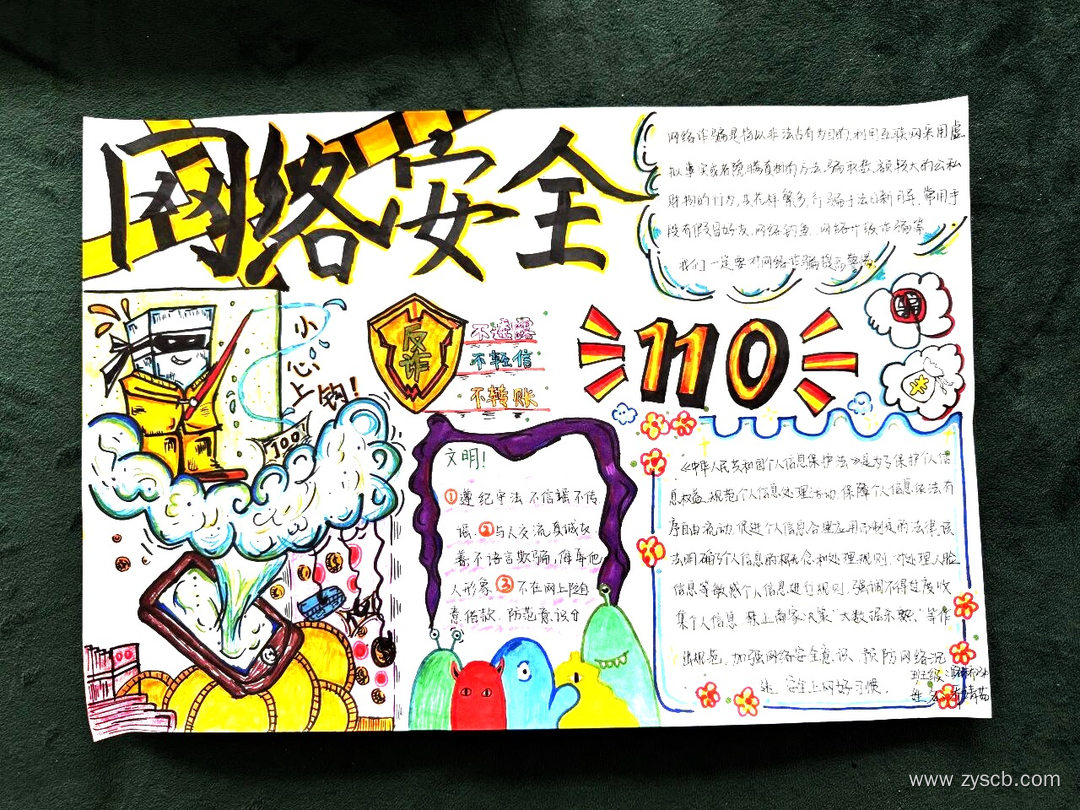 网络安全
网络诈骗是指以非法占有为目的,利用互联网采用虚
拟事实或者隐瞒真相的方法,骗取数额较大的公私
财物的行为,其花样繁多,行骗手法日新月异,常用手
段有假冒好友,网络钓鱼,网络升级诈骗等
我们一定要对网络诈骗提高警惕
小心上钩!
100
反诈
不透露
不轻信
不转账
110
文明!
①遵纪守法 不信谣不传
谣.②与人交流,真诚友
善,不语言欺骗,侮辱他
人形象 ③不在网上随
意借款.防范意识
《中华人民共和国个人信息保护法》是为了保护个人信
息权益,规范个人信息处理活动,保障个人信息依法有
序自由流动,促进个人信息合理应用而制定的法律,该
法明确了个人信息的概念和处理规则,对处理人脸
信息等敏感个人信息进行规则,强调不得过度收
集个人信息 禁止商家决策"大数据杀熟"等作
出规范,加强网络安全意识,预防网络沉
迷,安全上网好习惯.
班级:
姓名:
www.zyscb.com